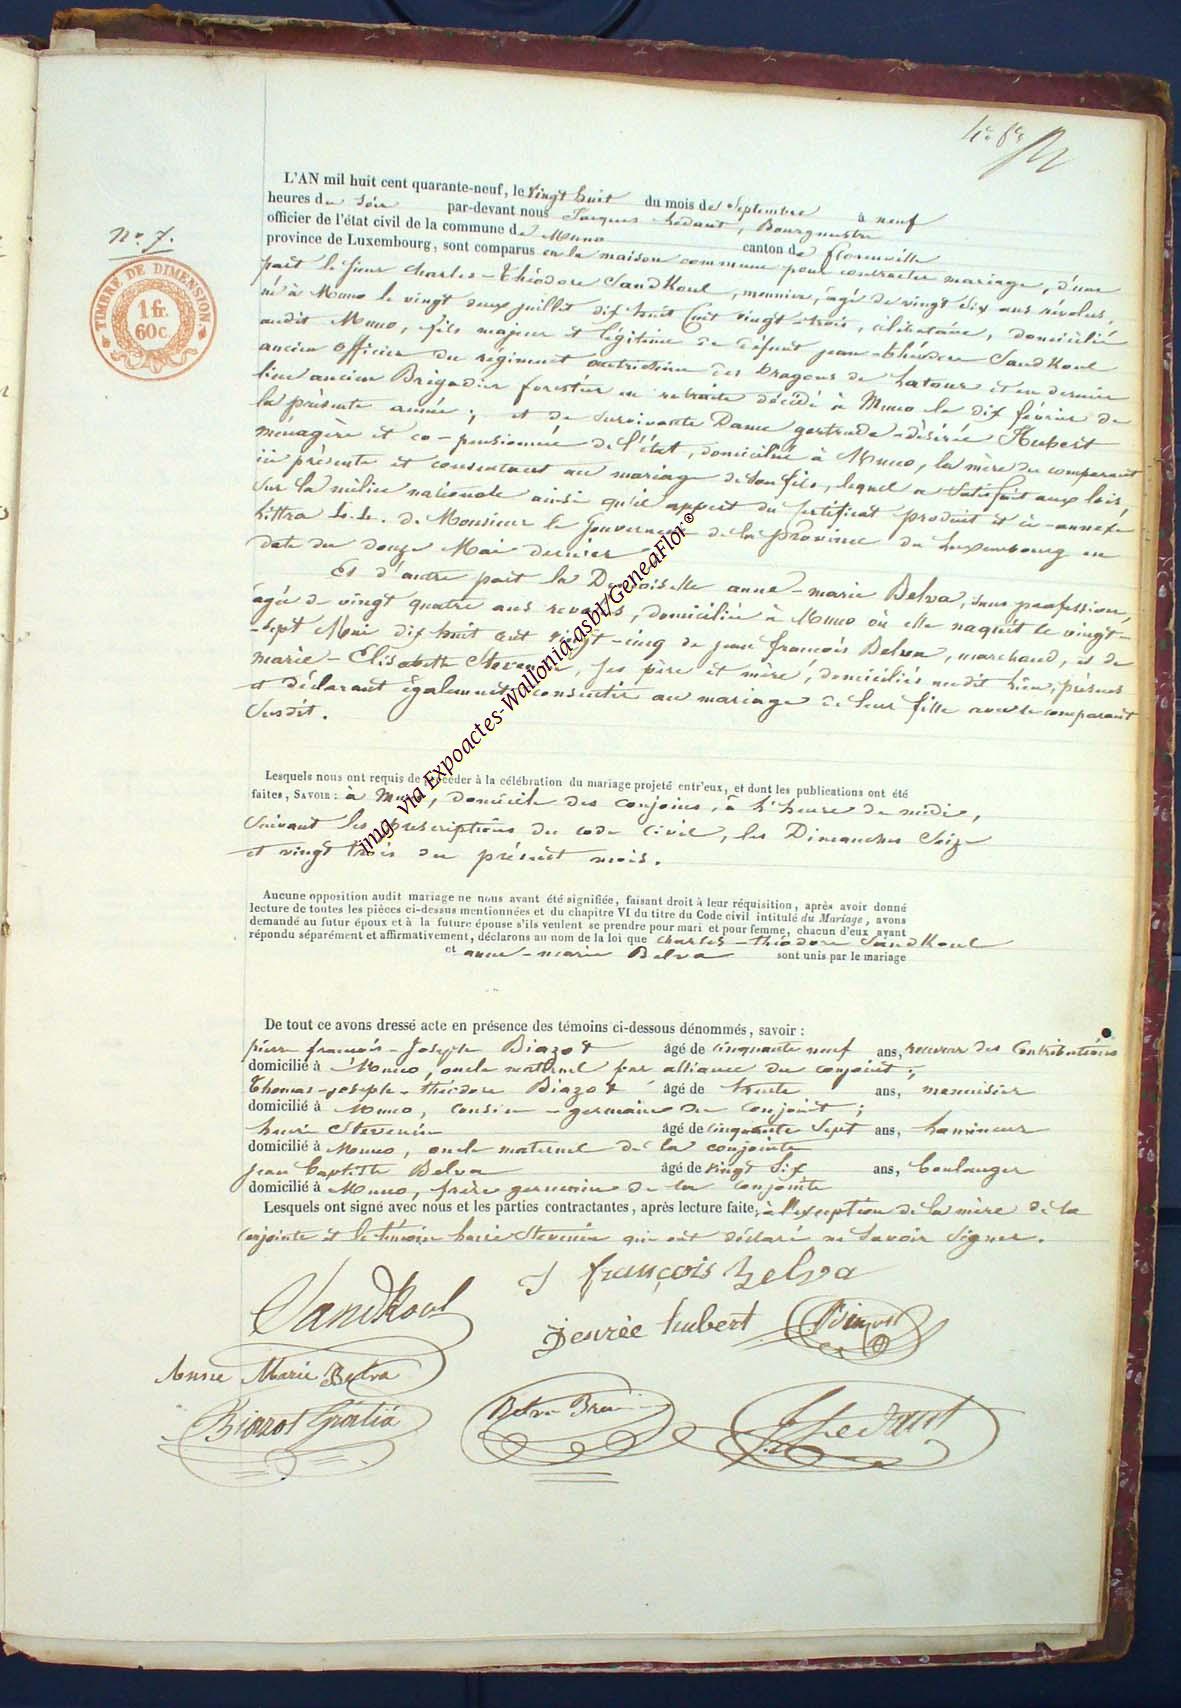 4e fe
L'AN mil huit cent quarante-neuf, le vingt huit du mois de Septembre à neuf
heures du soir par-devant nous Jacques Ledant, Bourgmestre
officier de l'état civil de la commune de Muno canton de Florenville
province de Luxembourg, sont comparus en la maison commune pour contracter mariage, d'une
No 7.
TIMBRE DE DIMENSION
1 fr.
60c.
part le sieur charles-Théodore Sandkoul, meunier, âgé de vingt six ans révolus,
né à Muno le vingt deux juillet dix huit Cent vingt-trois, célibataire, domicilié
audit Muno, fils majeur et légitime de défunt jean-théodore Sandkoul
ancien officier du régiment autrichien des Dragons de Latour et en dernier
lieu ancien Brigadier forestier en retraite décédé à Muno le dix février de
la présente année; et de survivante Dame gertrude-désirée Hubert
ménagère et co-pensionnée de l'état, domiciliée à Muno, la mère du comparant
ici présente et consentant au mariage de son fils, lequel a satisfait aux lois
sur la milice nationale ainsi qu'il appert du certificat produit et ci-annexé
Littra L.L. de Monsieur le gouverneur de la province du Luxembourg en
date du douze Mai dernier
Et d'autre part la Demoiselle anne-marie Belva, sans profession,
âgée de vingt quatre ans révolus, domiciliée à Muno où elle naquit le vingt-
-sept Mai dix huit cent vingt-cinq de jean françois Belva, marchand, et de
marie-Elisabeth Stevenin, ses père et mère, domiciliés audit lieu, présens
et déclarant également consentir au mariage de leur fille avec le comparant
susdit.
img. via Expoactes-Wallonia-asbl/GeneaFlor©
Lesquels nous ont requis de procéder à la célébration du mariage projeté entr'eux, et dont les publications ont été
faites, SAVOIR: à Muno, domicile des conjoins, à l'heure de midi,
suivant les prescriptions du code civil, les Dimanches Seize
et vingt trois du présent mois.
Aucune opposition audit mariage ne nous ayant été signifiée, faisant droit à leur réquisition, après avoir donné
lecture de toutes les pièces ci-dessus mentionnées et du chapitre VI du titre du Code civil intitulé du Mariage, avons
demandé au futur époux et à la future épouse s'ils veulent se prendre pour mari et pour femme, chacun d'eux ayant
répondu séparément et affirmativement, déclarons au nom de la loi que charles-théodore Sandkoul
et anne-marie Belva sont unis par le mariage
De tout ce avons dressé acte en présence des témoins ci-dessous dénommés, savoir:
pierre françois-Joseph Biazot âgé de cinquante neuf ans, receveur des Contributions
domicilié à Muno, oncle maternel par alliance du conjoint;
Thomas-joseph-théodore Biazot âgé de trente ans, menuisier
domicilié à Muno, cousin-germain du conjoint;
henri Stevenin âgé de cinquante Sept ans,
domicilié à Muno, oncle maternel de la conjointe
jean baptiste Belva âgé de vingt Six ans, boulanger
domicilié à Muno, frère germain de la conjointe
Lesquels ont signé avec nous et les parties contractantes, après lecture faite, à l'exception de la mère de la
conjointe et le témoin henri Stevenin qui ont déclaré ne savoir signer.
J françois Belva
Sandkoul
Desirée hubert
Biazot
Anne Marie Belva
Biazot
Belva
J Ledant